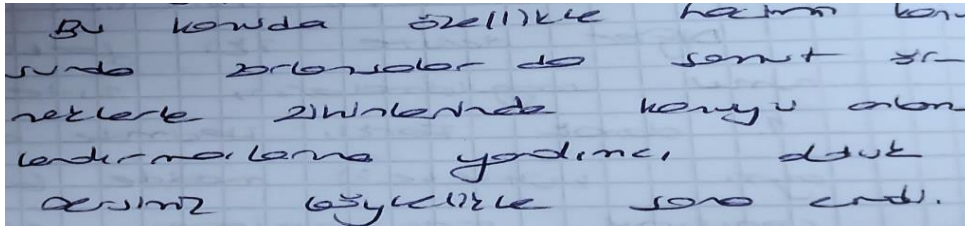 Bu konuda özellikle hacim konu
sunda zorlansalar da somut ör-
neklerle zihinlerinde konuyu anlam
landırmalarına yardımcı olduk
dersimiz böylelikle sona erdi.